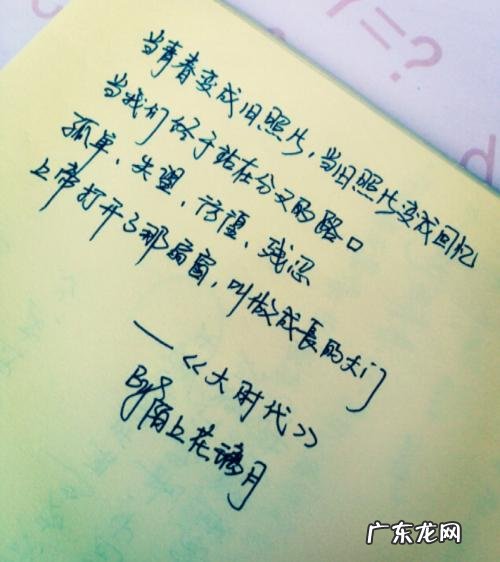 y=?
当青春变成旧照片,当旧照片变成回忆
当我们终于站在分叉的路口
孤单、失望、彷徨、残忍
上帝打开了那扇窗,叫做成長的大门
—《大时代》
By陌上花谤月
广东龙网